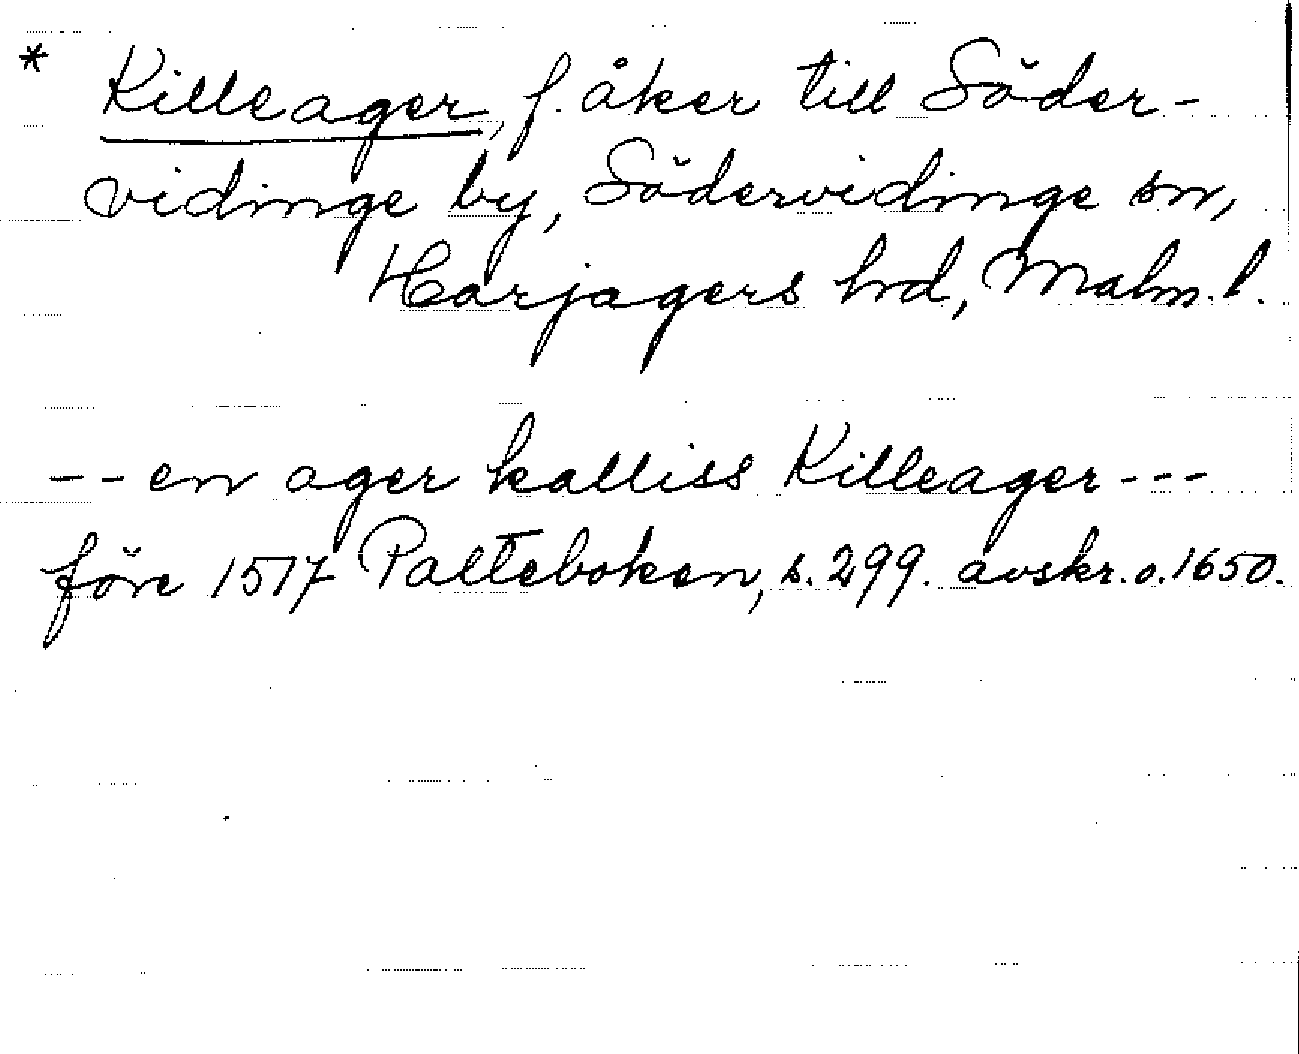 * Killeager, f. åker till Söder-
vidinge by, Södervidinge sn,
Harjagers hd, Malm. l.
-- en ager kalliss Killeager ---
före 1517 Palteboken, s. 299. avskr. o. 1650.